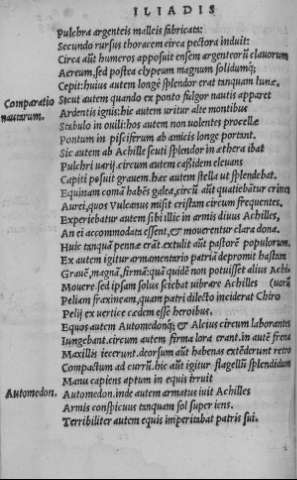 ILIADIS
Pulchra argenteis malleis fabricata:
Secundo rursus thoracem circa pectora induit:
Circa aūt humeros apposuit ensem argenteorū clauorum
Aereum, sed postea clypeum magnum solidumq;
Cepit: huius autem longè splendor erat tanquam lunæ.
Comparatio
nautarum.
Sicut autem quando ex ponto fulgor nautis apparet
Ardentis ignis: hic autem uritur alte montibus
Stabulo in ouili: hos autem non uolentes procellæ
Pontum in pisciferum ab amicis longe portant.
Sic autem ab Achille scuti splendor in æthera ibat
Pulchri uarij. circum autem cassidem eleuans
Capiti posuit grauem. hæc autem stella ut splendebat.
Equinam comā habēs galea, circū aūt quatiebātur crines
Aurei, quos Vulcanus misit cristam circum frequentes.
Experiebatur autem sibi illic in armis diuus Achilles,
An ei accommodata essent, & mouerentur clara dona.
Huic tanquā pennæ erāt. extulit aūt pastorē populorum.
Ex autem igitur armamentario patriā depromit hastam
Grauē, magnā, firmā: quā quidē non potuisset alius Achi-
Mouere. sed ipsam solus sciebat uibrare Achilles (uorū
Peliam fraxineam, quam patri dilecto inciderat Chiro
Pelij ex uertice cædem esse heroibus.
Equos autem Automedonq; & Alcius circum laborantes
Iungebant. circum autem firma lora erant. in autē frena
Maxillis iecerunt. deorsum aūt habenas extēderunt retro
Compactum ad currū. hic aūt igitur flagellū splendidum
Manu capiens aptum in equis irruit
Automedon.
Automedon. inde autem armatus iuit Achilles
Armis conspicuus tanquam sol super iens.
Terribiliter autem equis imperitabat patris sui.